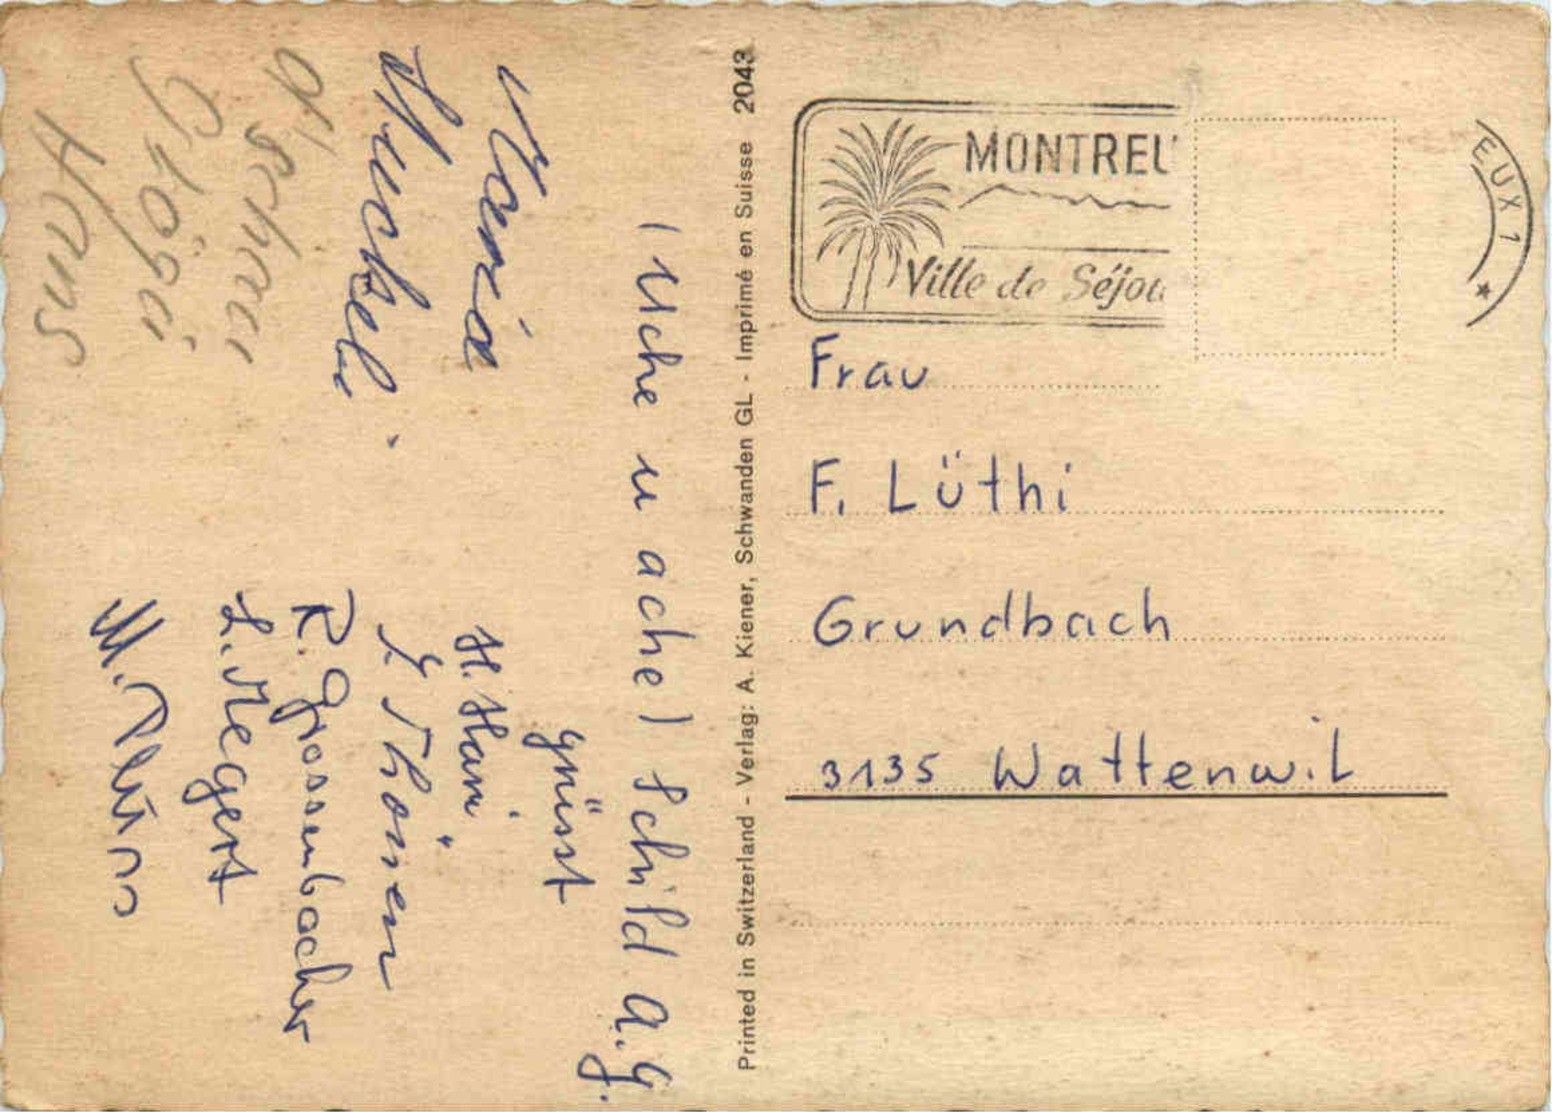 (Uche u ache) Schild A.G.
grüsst
Maria
H. Hani
J. Thönen
R. Grossenbacher
L. Megert
M.
Hans
2043
Printed in Switzerland - Verlag: A. Kiener, Schwanden GL - Imprimé en Suisse
MONTREU
Ville de Séjou
EUX 1
Frau
F. Lüthi
Grundbach
3135 Wattenwil